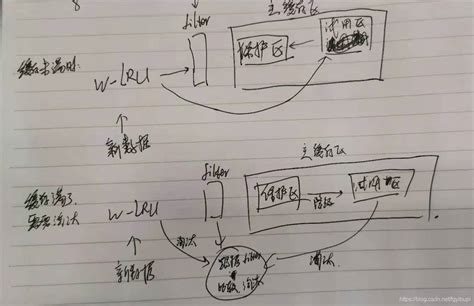 8
filter
主缓存区
保护区
试用区
缓存未满时
W-LRU
新数据
filter
主缓存区
缓存满了
需要淘汰
W-LRU
保护区
降级
试用区
淘汰
新数据
根据filter
比较淘汰
淘汰
https://blog.csdn.net/fgyibupi